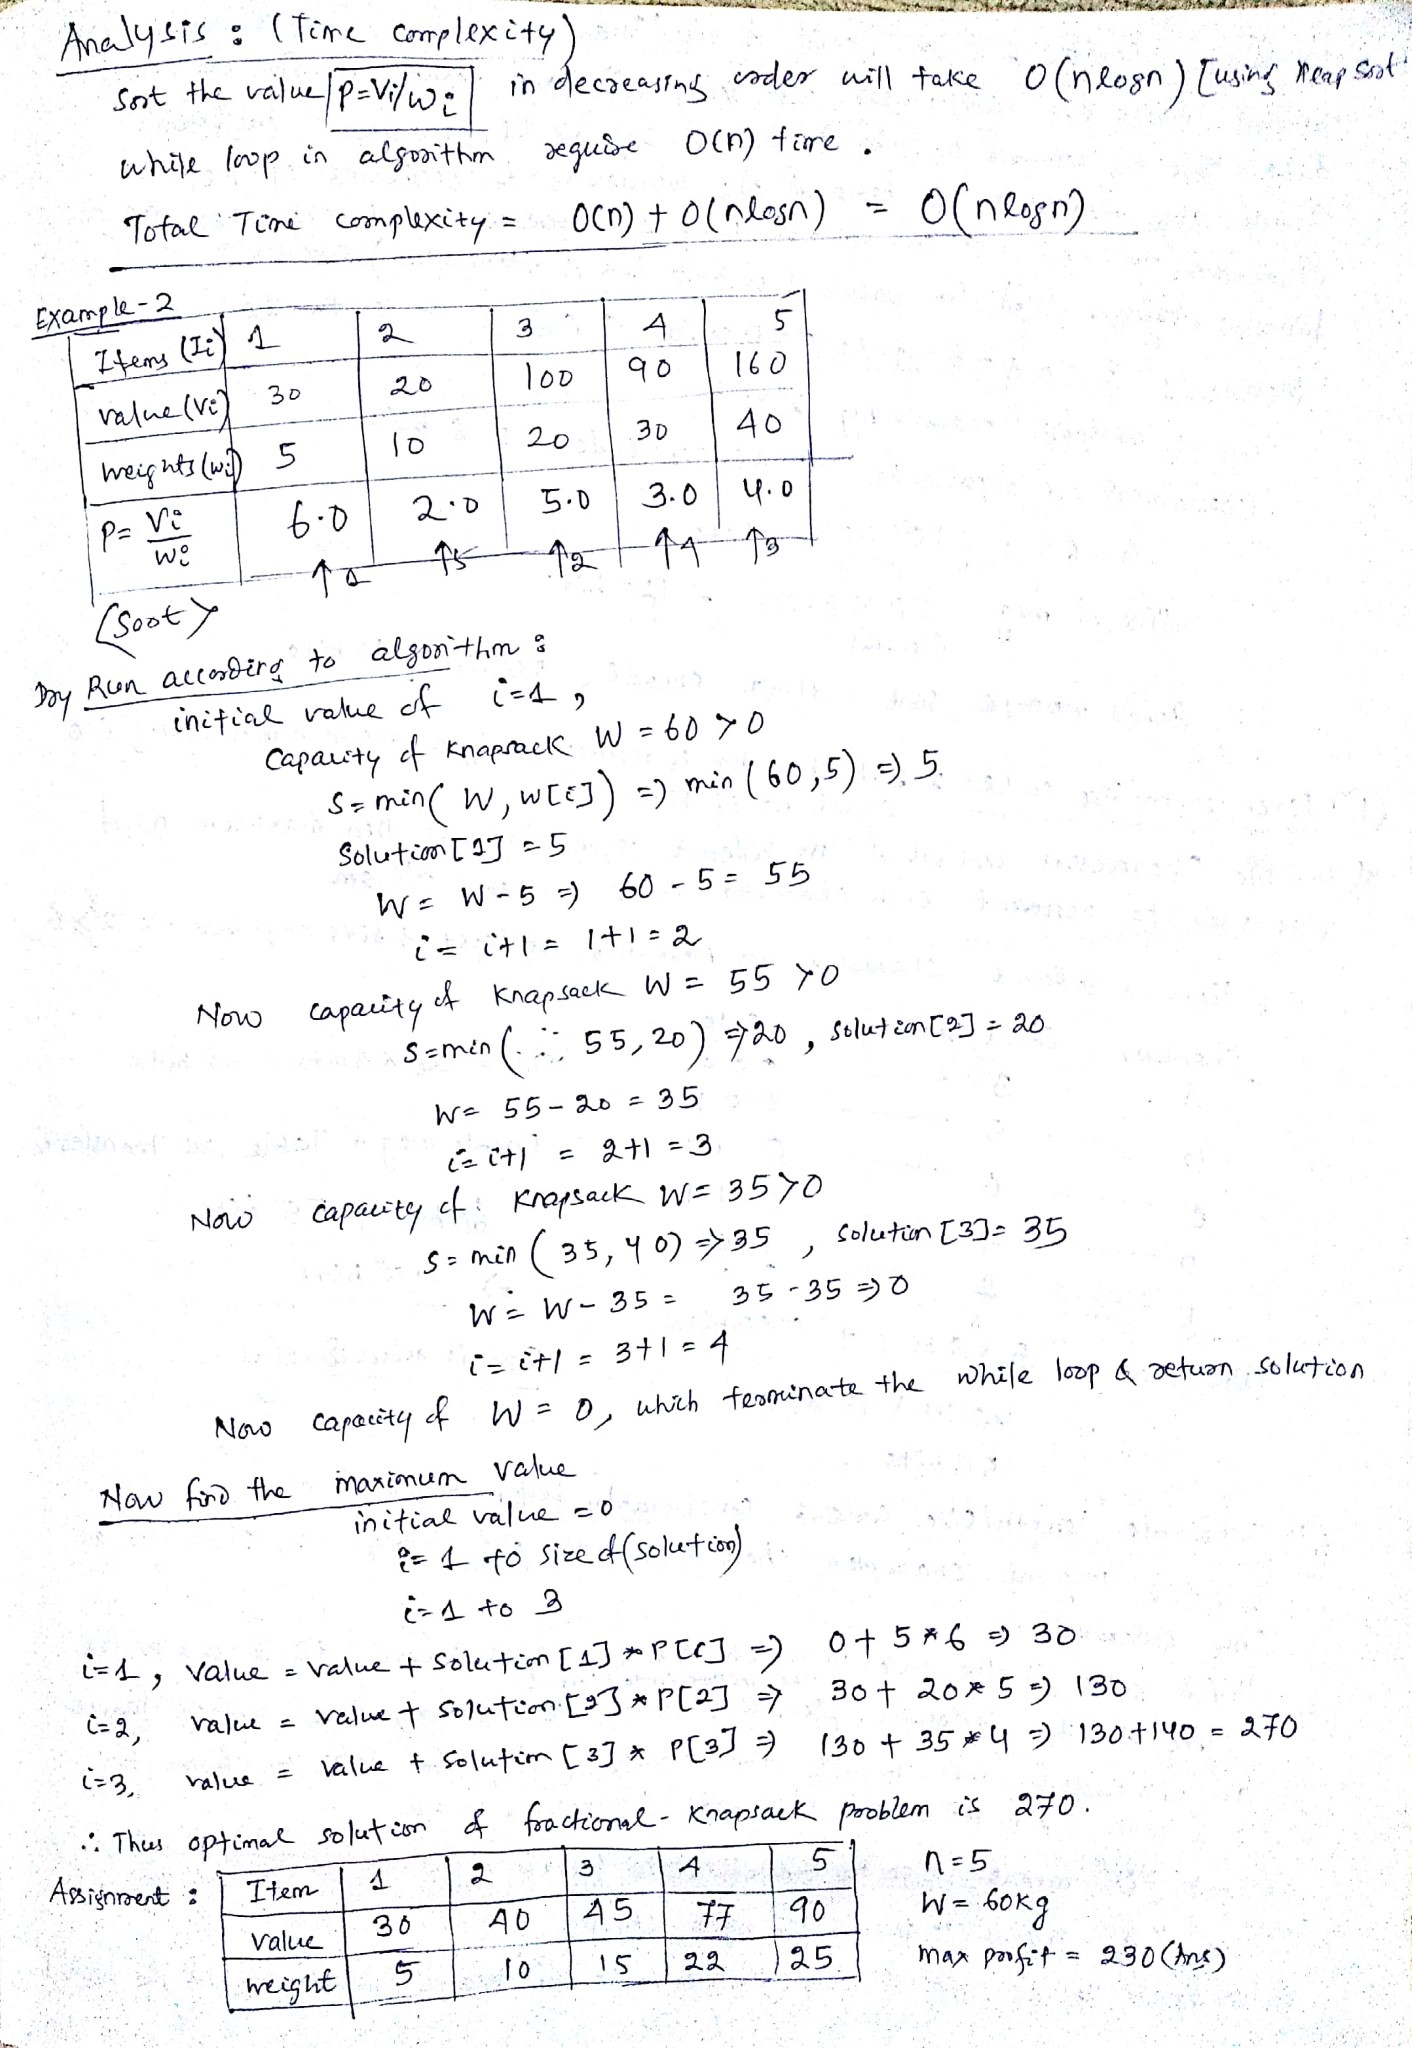 Analysis : (Time complexity)
Sort the value P=Vi/wi in decreasing order will take O(nlogn) [using Heap Sort
while loop in algorithm require O(n) time.
Total Time complexity = O(n) + O(nlogn) = O(nlogn)
Example-2
Items (Ii) 1 2 3 4 5
value (Vi) 30 20 100 90 160
weights (wi) 5 10 20 30 40
P= Vi/wi 6.0 2.0 5.0 3.0 4.0
↑1 ↑5 ↑2 ↑4 ↑3
(Sort>
Dry Run according to algorithm :
initial value of i=1,
Capacity of Knapsack W = 60 > 0
S = min( W, w[i]) => min (60,5) => 5.
Solution [1] = 5
W = W - 5 => 60 - 5 = 55
i = i+1 = 1+1 = 2
Now capacity of Knapsack W = 55 > 0
S = min ( 55, 20) => 20, solution [2] = 20
W = 55 - 20 = 35
i = i+1 = 2+1 = 3
Now capacity of Knapsack W = 35 > 0
S = min ( 35, 40) => 35, solution [3] = 35
W = W - 35 = 35 - 35 => 0
i = i+1 = 3+1 = 4
Now capacity of W = 0, which terminate the while loop & return solution
Now find the maximum value
initial value = 0
i = 1 to size of (solution)
i = 1 to 3
i=1, value = value + Solution [1] * P[i] => 0 + 5 * 6 => 30
i=2, value = value + Solution [2] * P[2] => 30 + 20 * 5 => 130
i=3, value = value + Solution [3] * P[3] => 130 + 35 * 4 => 130 + 140 = 270
∴ Thus optimal solution of fractional - Knapsack problem is 270.
Assignment : Item 1 2 3 4 5 n=5
value 30 40 45 77 90 W = 60kg
weight 5 10 15 22 25 max profit = 230 (Ans)